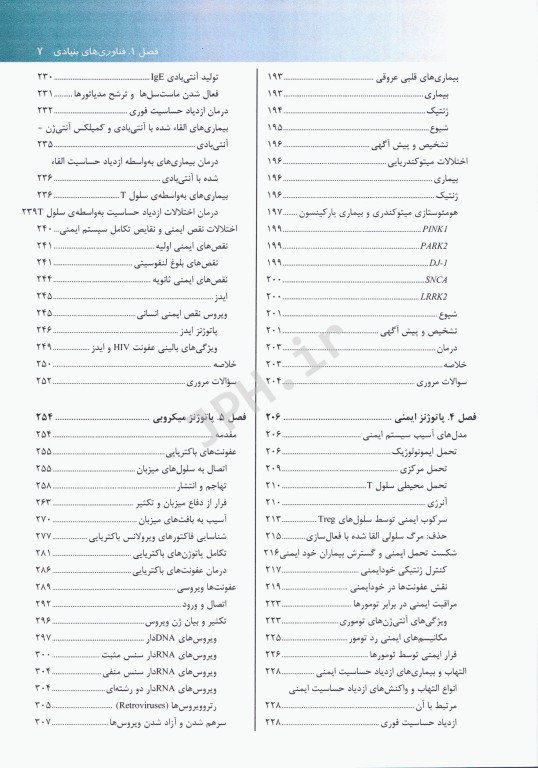 فصل ۱. فناوری‌های بنیادی ۷
بیماری‌های قلبی عروقی ۱۹۳
بیماری ۱۹۳
ژنتیک ۱۹۴
شیوع ۱۹۵
تشخیص و پیش آگهی ۱۹۶
اختلالات میتوکندریایی ۱۹۶
بیماری ۱۹۶
ژنتیک ۱۹۶
هومئوستازی میتوکندری و بیماری پارکینسون ۱۹۷
PINK1 ۱۹۹
PARK2 ۱۹۹
DJ-1 ۱۹۹
SNCA ۲۰۰
LRRK2 ۲۰۰
شیوع ۲۰۱
تشخیص و پیش آگهی ۲۰۱
درمان ۲۰۳
خلاصه ۲۰۳
سوالات مروری ۲۰۴
فصل ۴. پاتوژنز ایمنی ۲۰۶
مدل‌های آسیب سیستم ایمنی ۲۰۶
تحمل ایمونولوژیک ۲۰۶
تحمل مرکزی ۲۰۹
تحمل محیطی سلول T ۲۱۰
آنرژی ۲۱۰
سرکوب ایمنی توسط سلول‌های Treg ۲۱۳
حذف: مرگ سلولی القا شده با فعال‌سازی ۲۱۵
شکست تحمل ایمنی و گسترش بیماران خود ایمنی ۲۱۶
کنترل ژنتیکی خودایمنی ۲۱۷
نقش عفونت‌ها در خودایمنی ۲۱۹
مراقبت ایمنی در برابر تومورها ۲۲۳
ویژگی‌های آنتی‌ژن‌های توموری ۲۲۳
مکانیسم‌های ایمنی رد تومور ۲۲۵
فرار ایمنی توسط تومورها ۲۲۶
التهاب و بیماری‌های ازدیاد حساسیت ایمنی ۲۲۸
انواع التهاب و واکنش‌های ازدیاد حساسیت ایمنی
مرتبط با آن ۲۲۸
ازدیاد حساسیت فوری ۲۲۸
تولید آنتی‌بادی IgE ۲۳۰
فعال شدن ماست‌سل‌ها و ترشح مدیاتورها ۲۳۱
درمان ازدیاد حساسیت فوری ۲۳۲
بیماری‌های القاء شده با آنتی‌بادی و کمپلکس آنتی‌ژن –
آنتی‌بادی ۲۳۵
درمان بیماری‌های به‌واسطه ازدیاد حساسیت القاء
شده با آنتی‌بادی ۲۳۶
بیماری‌های به‌واسطه‌ی سلول T ۲۳۶
درمان اختلالات ازدیاد حساسیت به‌واسطه‌ی سلول T ۲۳۹
اختلالات نقص ایمنی و نقایص تکامل سیستم ایمنی ۲۴۰
نقص‌های ایمنی اولیه ۲۴۱
نقص‌های بلوغ لنفوسیتی ۲۴۱
نقص‌های ایمنی ثانویه ۲۴۴
ایدز ۲۴۵
ویروس نقص ایمنی انسانی ۲۴۵
پاتوژنز ایدز ۲۴۶
ویژگی‌های بالینی عفونت HIV و ایدز ۲۴۹
خلاصه ۲۵۰
سؤالات مروری ۲۵۲
فصل ۵. پاتوژنز میکروبی ۲۵۴
مقدمه ۲۵۴
عفونت‌های باکتریایی ۲۵۵
اتصال به سلول‌های میزبان ۲۵۵
تهاجم و انتشار ۲۵۸
فرار از دفاع میزبان و تکثیر ۲۶۳
آسیب به بافت‌های میزبان ۲۷۰
شناسایی فاکتورهای ویرولانس باکتریایی ۲۷۷
تکامل پاتوژن‌های باکتریایی ۲۸۱
درمان عفونت‌های باکتریایی ۲۸۶
عفونت‌ها ویروسی ۲۸۹
اتصال و ورود ۲۹۲
تکثیر و بیان ژن ویروس ۲۹۶
ویروس‌های DNAدار ۲۹۷
ویروس‌های RNAدار سنس مثبت ۳۰۰
ویروس‌های RNAدار سنس منفی ۳۰۴
ویروس‌های RNAدار دو رشته‌ای ۳۰۴
رتروویروس‌ها (Retroviruses) ۳۰۵
سرهم شدن و آزاد شدن ویروس‌ها ۳۰۷
JPH.ir